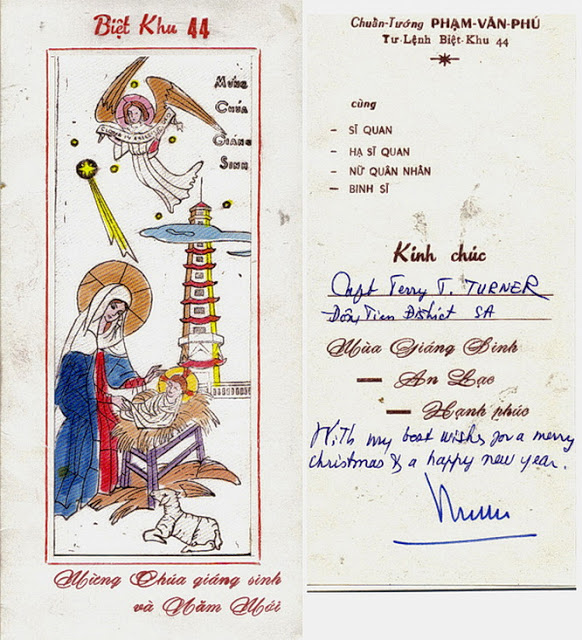 Biệt Khu 44
MừNG
CHÚA
GIÁNG
SINH
Mừng Chúa giáng sinh
và Năm Mới
Chuẩn-Tướng PHẠM-VĂN-PHÚ
Tư-Lệnh Biệt-Khu 44
cùng
– SĨ QUAN
– HẠ SĨ QUAN
– NỮ QUÂN NHÂN
– BINH SĨ
Kính chúc
Capt Terry T. TURNER
Dông Tien District SA
Mùa Giáng Sinh
— An Lạc
— Hạnh phúc
With my best wishes for a merry
christmas & a happy new year.